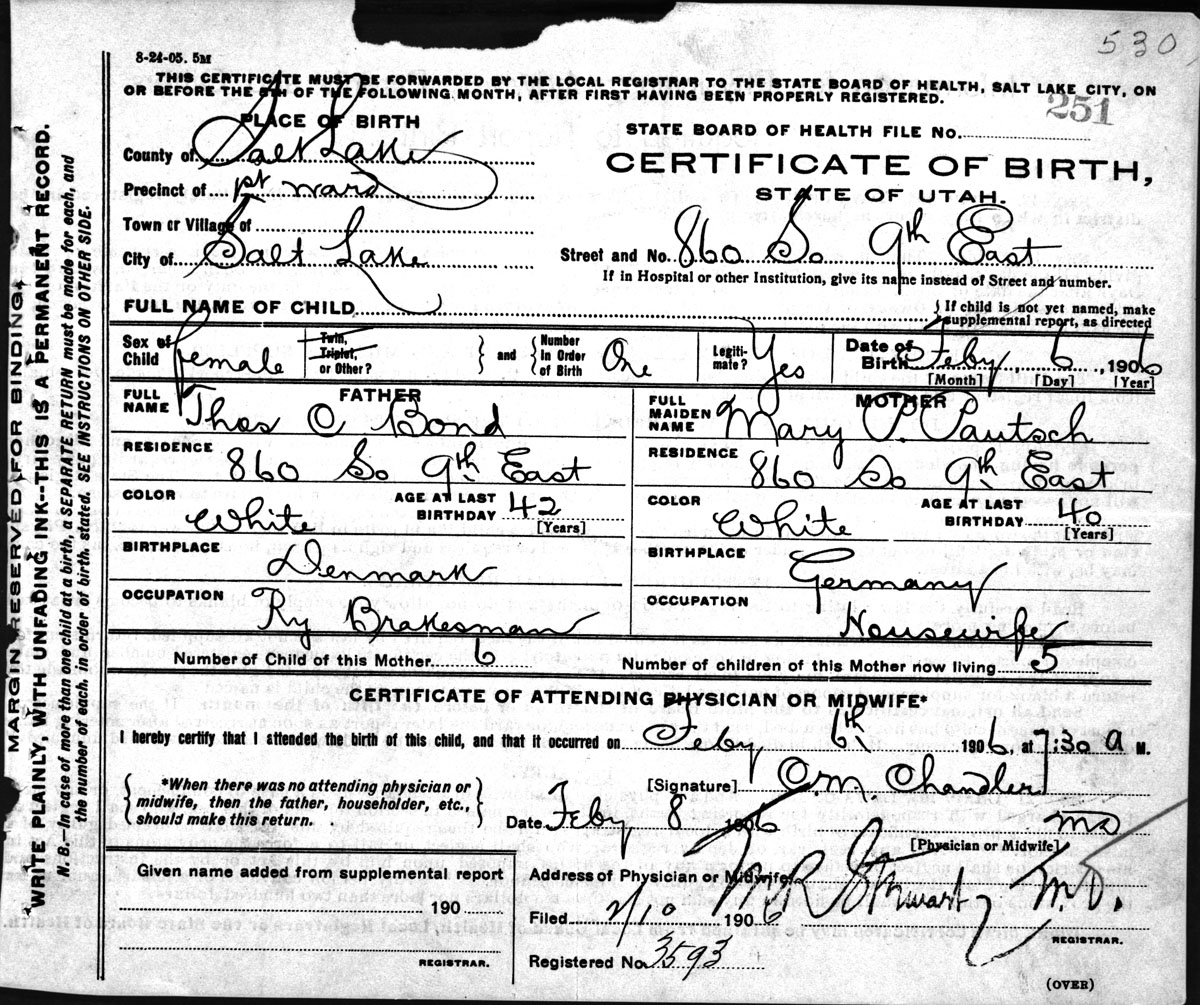 530
8-24-05. 5M
THIS CERTIFICATE MUST BE FORWARDED BY THE LOCAL REGISTRAR TO THE STATE BOARD OF HEALTH, SALT LAKE CITY, ON
OR BEFORE THE 5TH OF THE FOLLOWING MONTH, AFTER FIRST HAVING BEEN PROPERLY REGISTERED.
251
PLACE OF BIRTH
STATE BOARD OF HEALTH FILE No.
County of Salt Lake
CERTIFICATE OF BIRTH,
Precinct of 1st ward
STATE OF UTAH.
Town or Village of
City of Salt Lake
Street and No. 860 So 9th East
If in Hospital or other Institution, give its name instead of Street and number.
FULL NAME OF CHILD
If child is not yet named, make
supplemental report, as directed
Sex of Child Female
Twin, Triplet, or Other?
and
Number In Order of Birth One
Legitimate? Yes
Date of Birth Feby 6, 1906
[Month] [Day] [Year]
FATHER
FULL NAME Thos O Bond
RESIDENCE 860 So 9th East
COLOR White
AGE AT LAST BIRTHDAY 42
[Years]
BIRTHPLACE Denmark
OCCUPATION Ry Brakesman
MOTHER
FULL MAIDEN NAME Mary P. Pautsch
RESIDENCE 860 So 9th East
COLOR White
AGE AT LAST BIRTHDAY 40
[Years]
BIRTHPLACE Germany
OCCUPATION Housewife
Number of Child of this Mother 6
Number of children of this Mother now living 5
CERTIFICATE OF ATTENDING PHYSICIAN OR MIDWIFE*
I hereby certify that I attended the birth of this child, and that it occurred on Feby 6th 1906, at 7:30 a M.
*When there was no attending physician or
midwife, then the father, householder, etc.,
should make this return.
[Signature] O.M. Chandler
Date Feby 8 1906
MD
[Physician or Midwife]
Given name added from supplemental report
190
REGISTRAR.
Address of Physician or Midwife
Filed 2/10 1906
M.D.
REGISTRAR.
Registered No. 3593
(OVER)
MARGIN RESERVED FOR BINDING.
WRITE PLAINLY, WITH UNFADING INK--THIS IS A PERMANENT RECORD.
N. B.—In case of more than one child at a birth, a SEPARATE RETURN must be made for each, and
the number of each, in order of birth, stated. SEE INSTRUCTIONS ON OTHER SIDE.